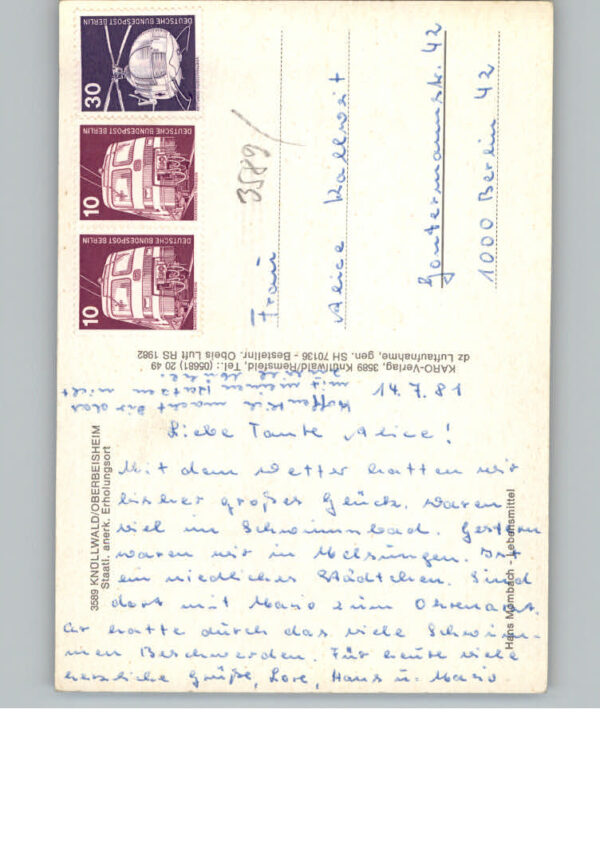 3589 KNÜLLWALD/OBERBEISHEIM
Staatl. anerk. Erholungsort
14.7.81
Liebe Tante Alice!
Mit dem Wetter hatten wir
bisher großes Glück, waren
viel im Schwimmbad. Gestern
waren wir in Melsungen. Ist
ein niedliches Städtchen. Sind
dort mit Mario zum Ohrenarzt.
Er hatte durch das viele Schwim-
men Beschwerden. Für heute viele
herzliche Grüße, Lore, Hans u. Mario
Hoffentlich macht Dir das
mit meinen Katzen nicht
Mühe.
KARO-Verlag, 3589 Knüllwald/Remsfeld, Tel.: (05681) 20 49
dz Luftaufnahme, gen. SH 70136 - Bestellnr. Obeis Luft RS 1982
Hans Mombach - Lebensmittel
DEUTSCHE BUNDESPOST BERLIN
30
DEUTSCHE BUNDESPOST BERLIN
10
DEUTSCHE BUNDESPOST BERLIN
10
3589/
Frau
Alice Kallweit
Gontermannstr. 42
1000 Berlin 42